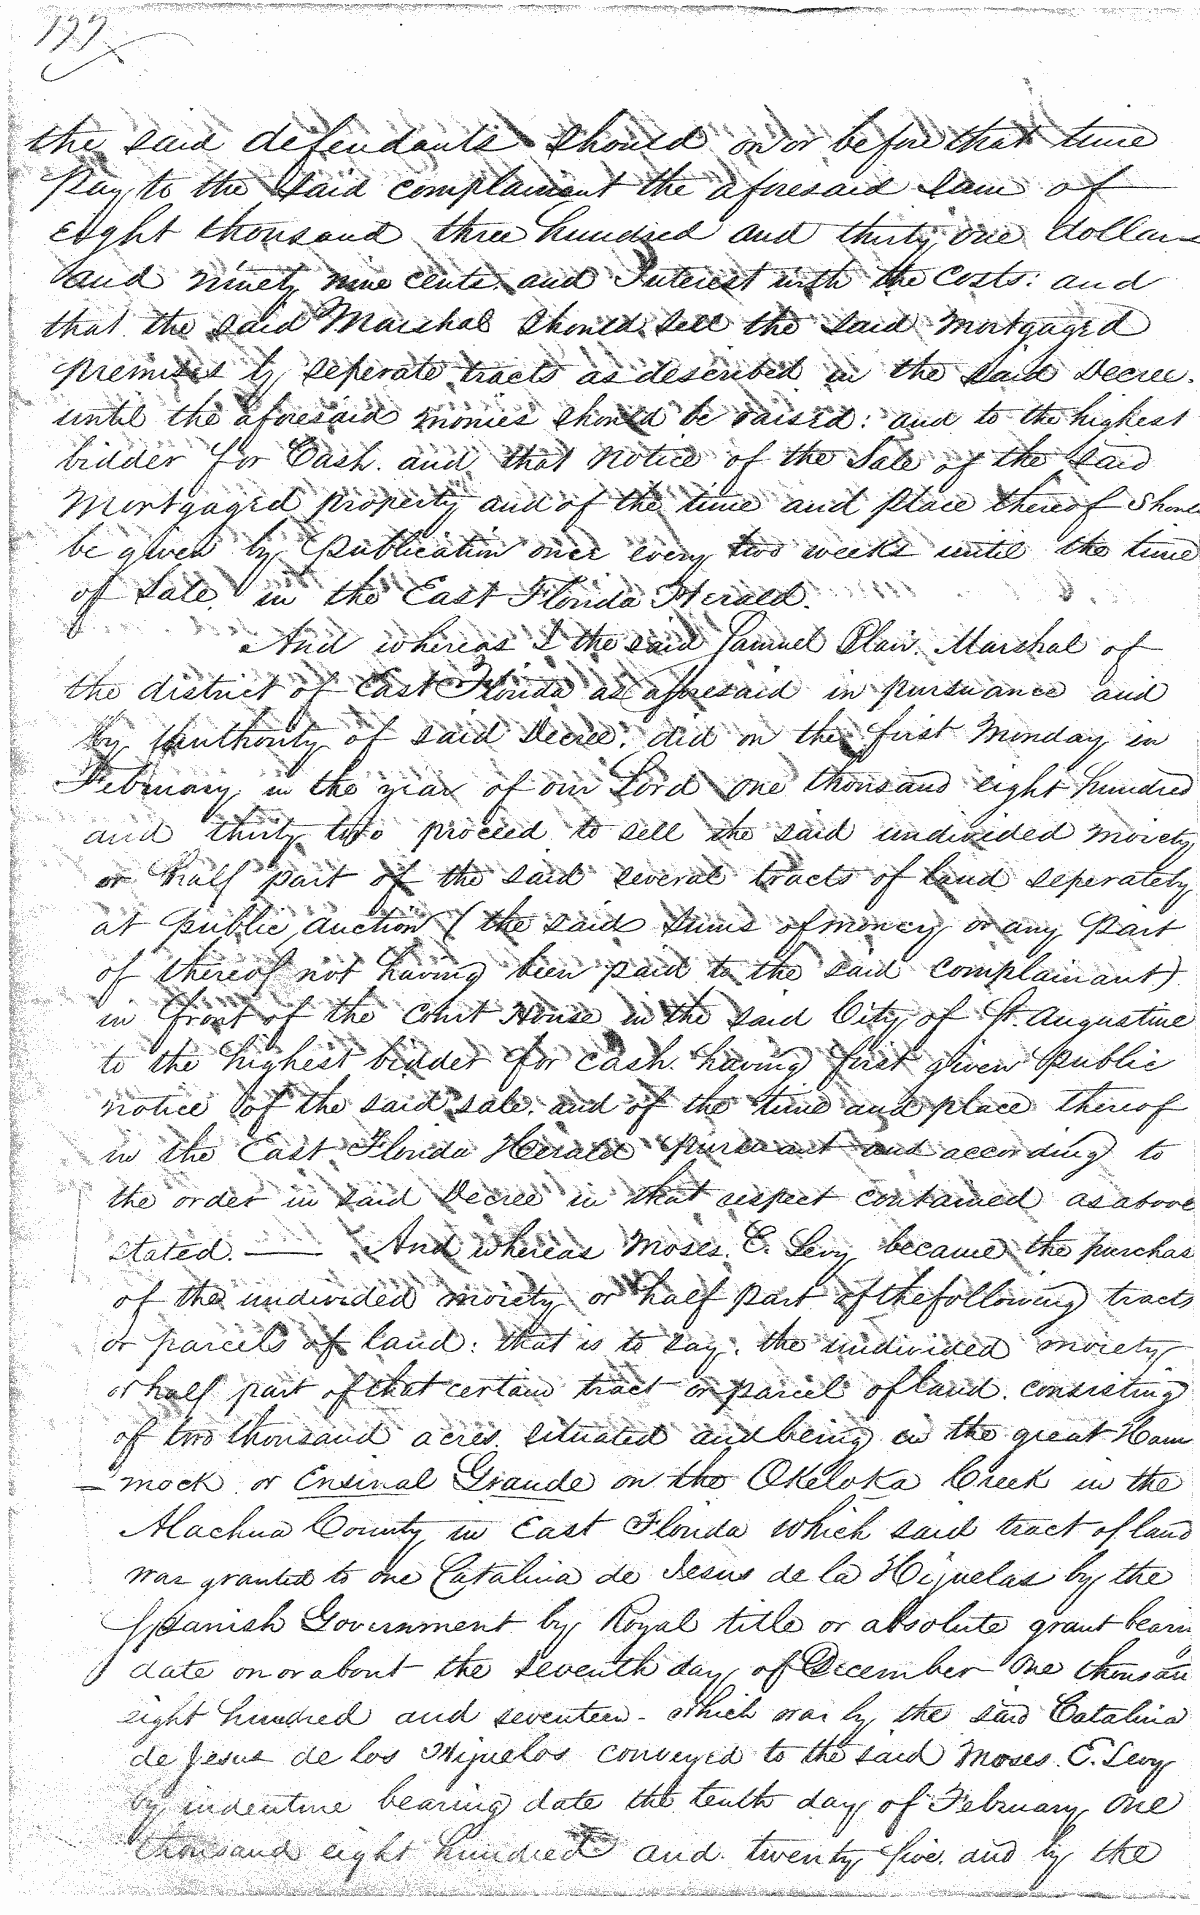 177
the said defendants should on or before that time
pay to the said complainant the aforesaid sum of
eight thousand three hundred and thirty one dollars
and ninety nine cents and Interest with the costs: and
that the said Marshal should sell the said mortgaged
premises by seperate tracts as described in the said Decree.
until the aforesaid monies should be raised: and to the highest
bidder for Cash. and that notice of the Sale of the said
Mortgaged property and of the time and place thereof shoul
be given by publication once every two weeks until the time
of Sale. in the East Florida Herald.
And whereas I the said Samuel Blair. Marshal of
the district of East Florida as aforesaid in pursuance and
by Authority of said Decree. did on the first Monday in
February in the year of our Lord one thousand eight hundred
and thirty two proceed to sell the said undivided moiety
or half part of the said several tracts of land seperately
at public auction (the said sums of money or any part
of thereof not having been paid to the said complainant)
in front of the Court House in the said City of St. Augustine
to the highest bidder for cash. having first given public
notice of the said sale. and of the time and place thereof
in the East Florida Herald pursuant and according to
the order in said Decree in that respect contained as above
stated. — And whereas Moses. E. Levy became the purchas
of the undivided moiety or half part of the following tracts
or parcels of land: that is to say. the undivided moiety
or half part of that certain tract or parcel of land. consisting
of two thousand acres. situated and being in the great Ham
- mock or Ensinal Grande on the Okeloka Creek in the
Alachua County in East Florida which said tract of land
was granted to one Catalina de Jesus de la Hijuelas by the
Spanish Government by Royal title or absolute grant bearin
date on or about the seventh day of December One thousan
eight hundred and seventeen - which was by the said Catalina
de Jesus de los Hijuelos conveyed to the said Moses. E. Levy
by indenture bearing date the tenth day of February One
thousand eight hundred and twenty five. and by the